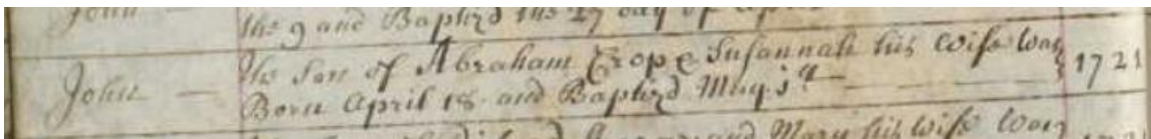 John
the 9 and Baptzd the 27 day of April
John — the Son of Abraham Crop & Susannah his Wife was 1721
Born April 18 and Baptzd May 1st
and Mary his Wife Was